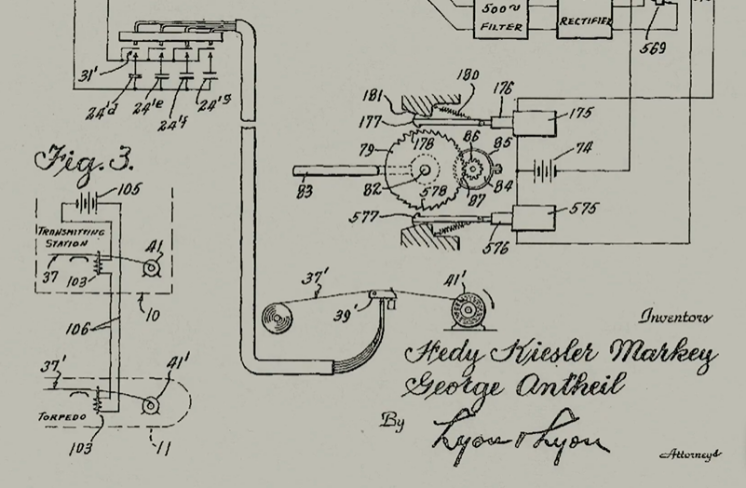 500~
FILTER
RECTIFIER
569
31'
24'd 24'e 24'f 24'g
181 180 176
177 175
178 86 85
79 74
83 82 578 87 84
577 576 575
Fig. 3.
105
TRANSMITTING
STATION
41
37 103
10
106
37' 41'
TORPEDO
103 11
37' 41'
39'
Inventors
Hedy Kiesler Markey
George Antheil
By Lyon & Lyon
Attorneys